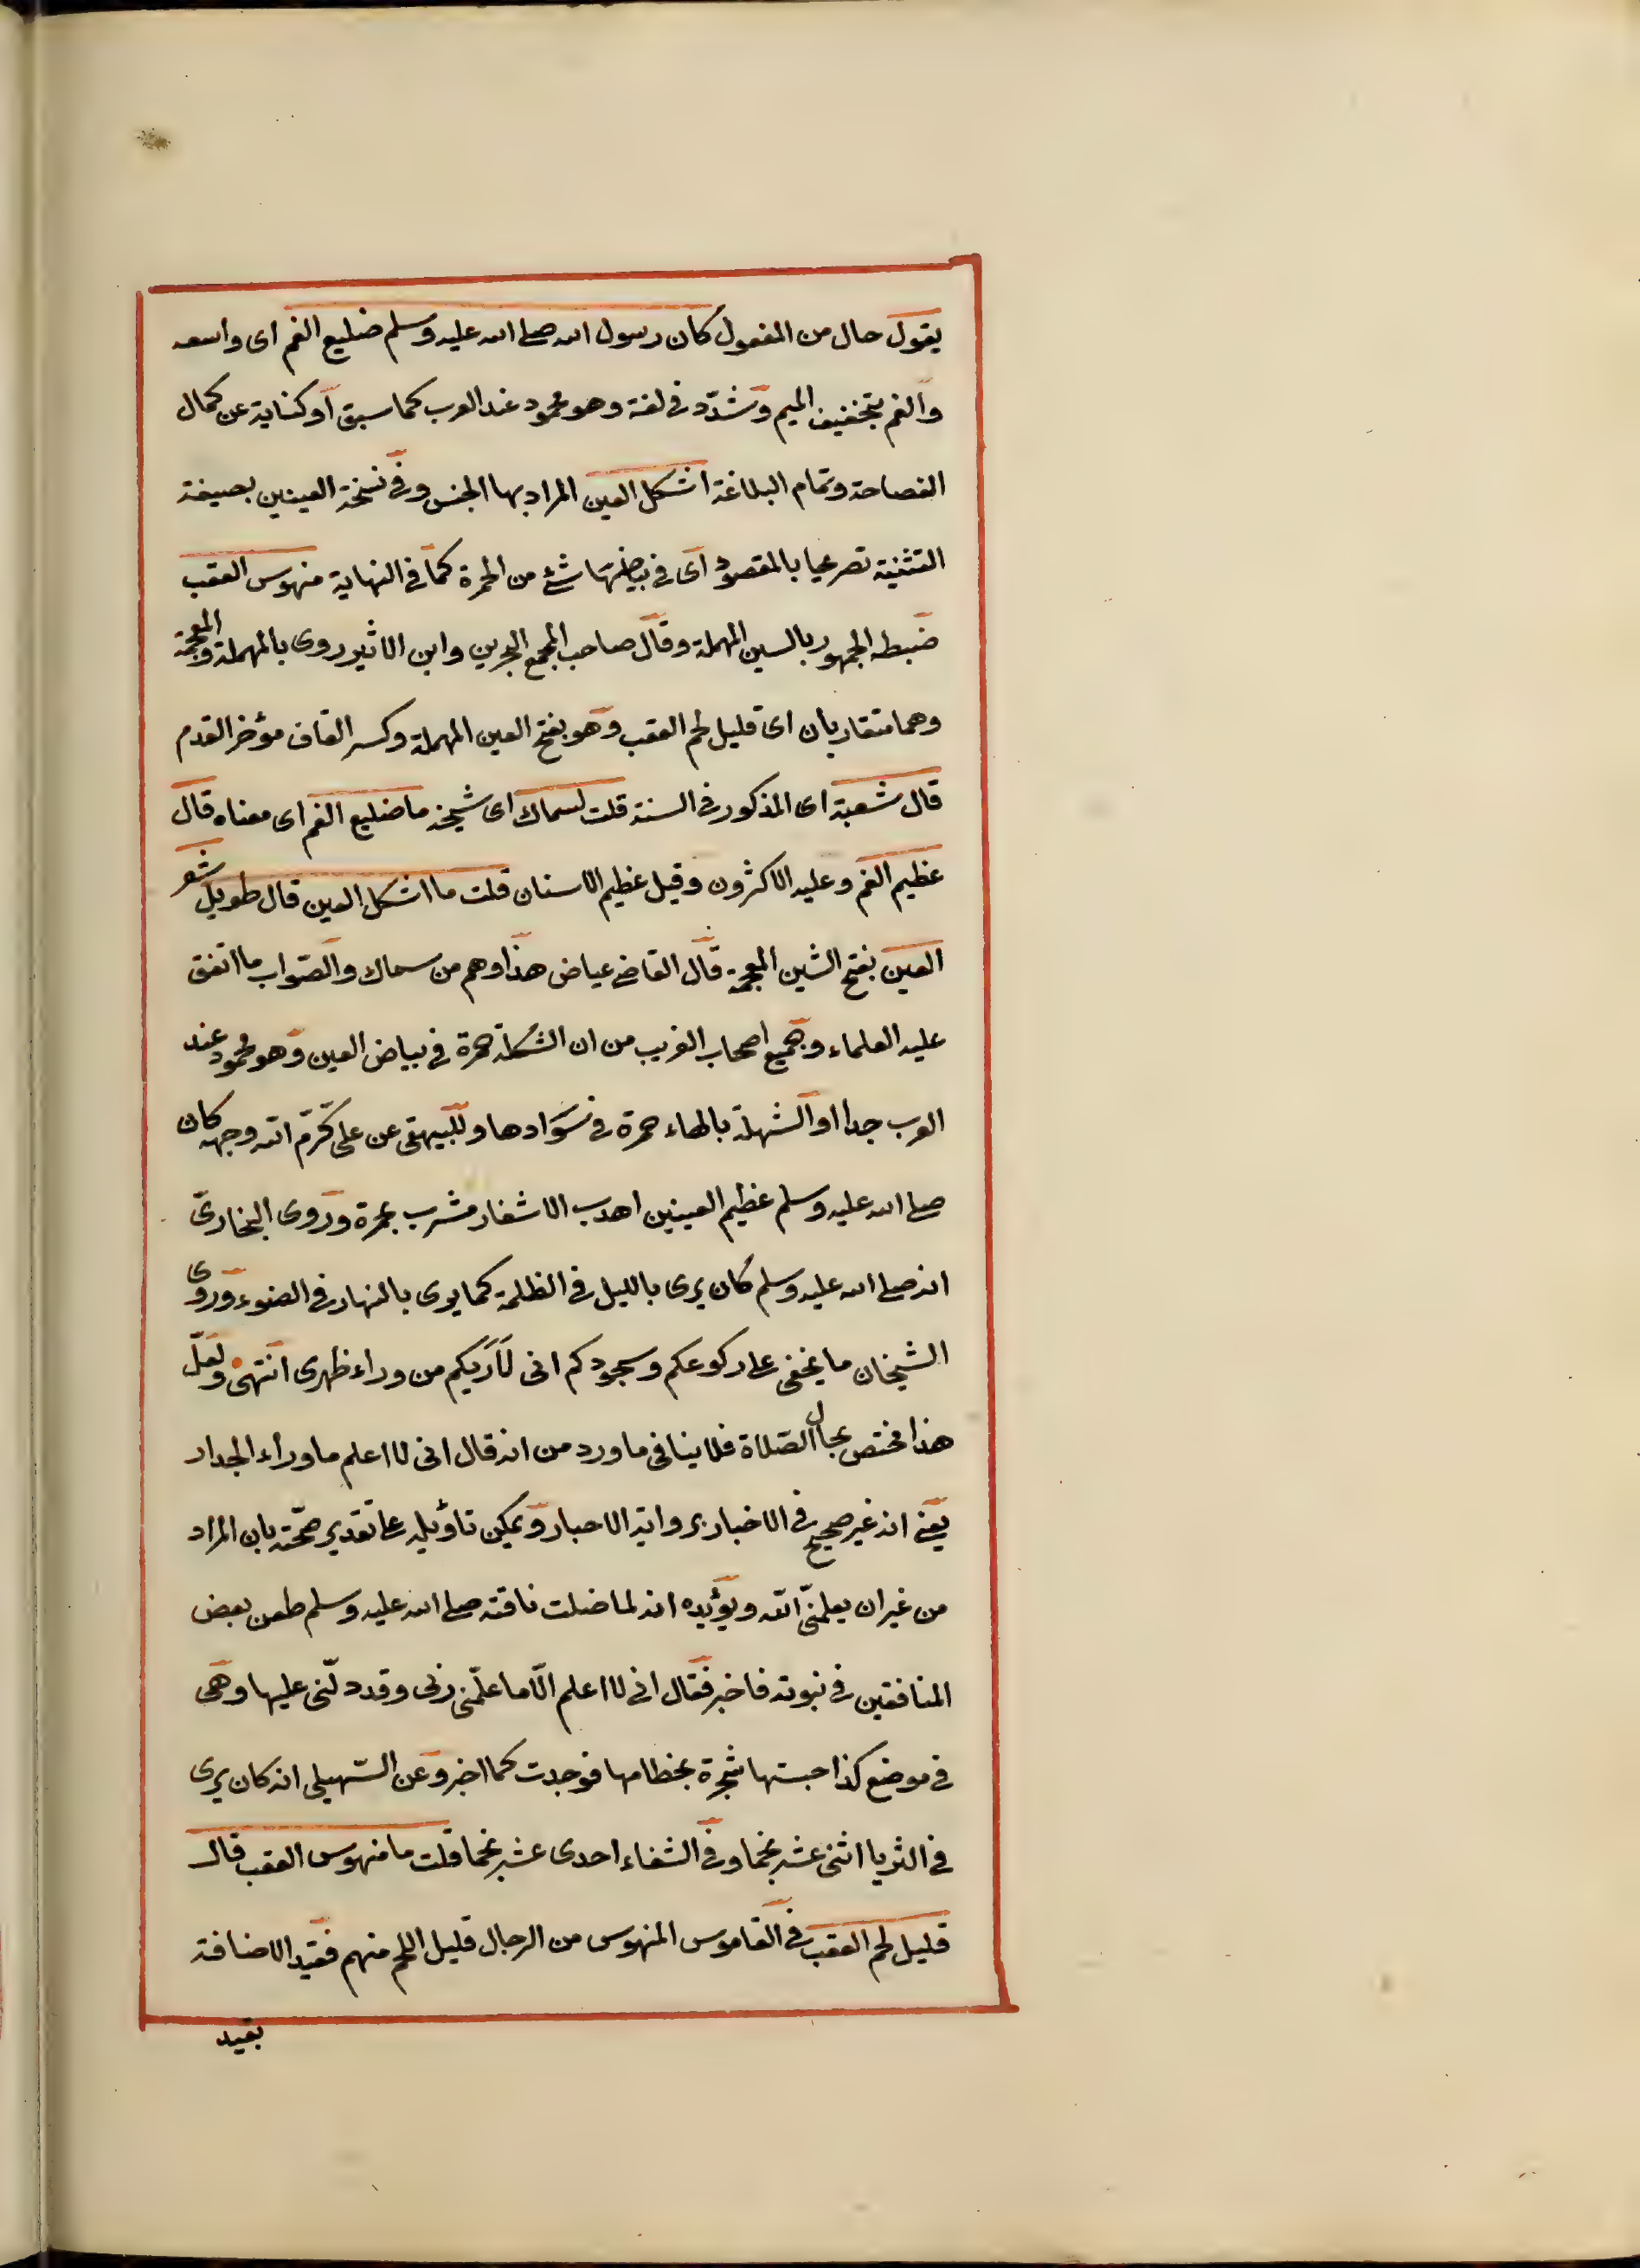 يقول حال من المفعول كان رسول الله صلى الله عليه وسلم ضليع الفم اى واسعه
والفم بتخفيف الميم وتشدّد فى لغة وهو محمود عند العرب كما سبق او كناية عن كمال
الفصاحة وتمام البلاغة اشكل العين المراد بها الجنس وفى نسخة العينين بصيغة
التثنية تصريحا بالمقصود اى فى بياضهما شئ من الحمرة كما فى النهاية منهوس العقب
ضبطه الجمهور بالسين المهملة وقال صاحب المجمع البحرين وابن الاثير روى بالمهملة والمعجمة
وهما متقاربان اى قليل لحم العقب وهو بفتح العين المهملة وكسر القاف مؤخر القدم
قال شعبة اى المذكور فى السند قلت لسماك اى شيخه ما ضليع الفم اى معناه قال
عظيم الفم وعليه الاكثرون وقيل عظيم الاسنان قلت ما اشكل العين قال طويل شفر
العين بفتح الشين المعجمة قال القاضى عياض هذا وهم من سماك والصّواب ما اتفق
عليه العلماء وجميع اصحاب الغريب من ان الشكلة حمرة فى بياض العين وهو محمود عند
العرب جدا او الشهلة بالهاء حمرة فى سوادها وللبيهقى عن على كرّم الله وجهه كان
صلى الله عليه وسلم عظيم العينين اهدب الاشفار مشرب بحمرة وروى البخارىّ
انه صلى الله عليه وسلم كان يرى بالليل فى الظلمة كما يرى بالنهار فى الضوء وروى
الشيخان ما يخفى على ركوعكم وسجودكم انى لأريكم من وراء ظهرى انتهى ولعلّ
هذا مختص بحال الصّلاة فلا ينافى ما ورد من انه قال انى لا اعلم ما وراء الجدار
يعنى انه غير صحيح فى الاخبار برواية الاحبار ويمكن تأويله على تقدير صحّته بان المراد
من غير ان يعلمنى الله ويؤيده انه لما ضلت ناقته صلى الله عليه وسلم طعن بعض
المنافقين فى نبوته فاخبر فقال انى لا اعلم الّا ما علّمنى ربى وقد دلّنى عليها وهى
فى موضع كذا حبستها شجرة بخطامها فوجدت كما اخبر وعن السّهيلى انه كان يرى
فى الثريا اثنى عشر نجما وفى الشفاء احدى عشر نجما قلت ما منهوس العقب قال
قليل لحم العقب فى القاموس المنهوس من الرجال قليل اللحم منهم فقيد الاضافة
بقيد